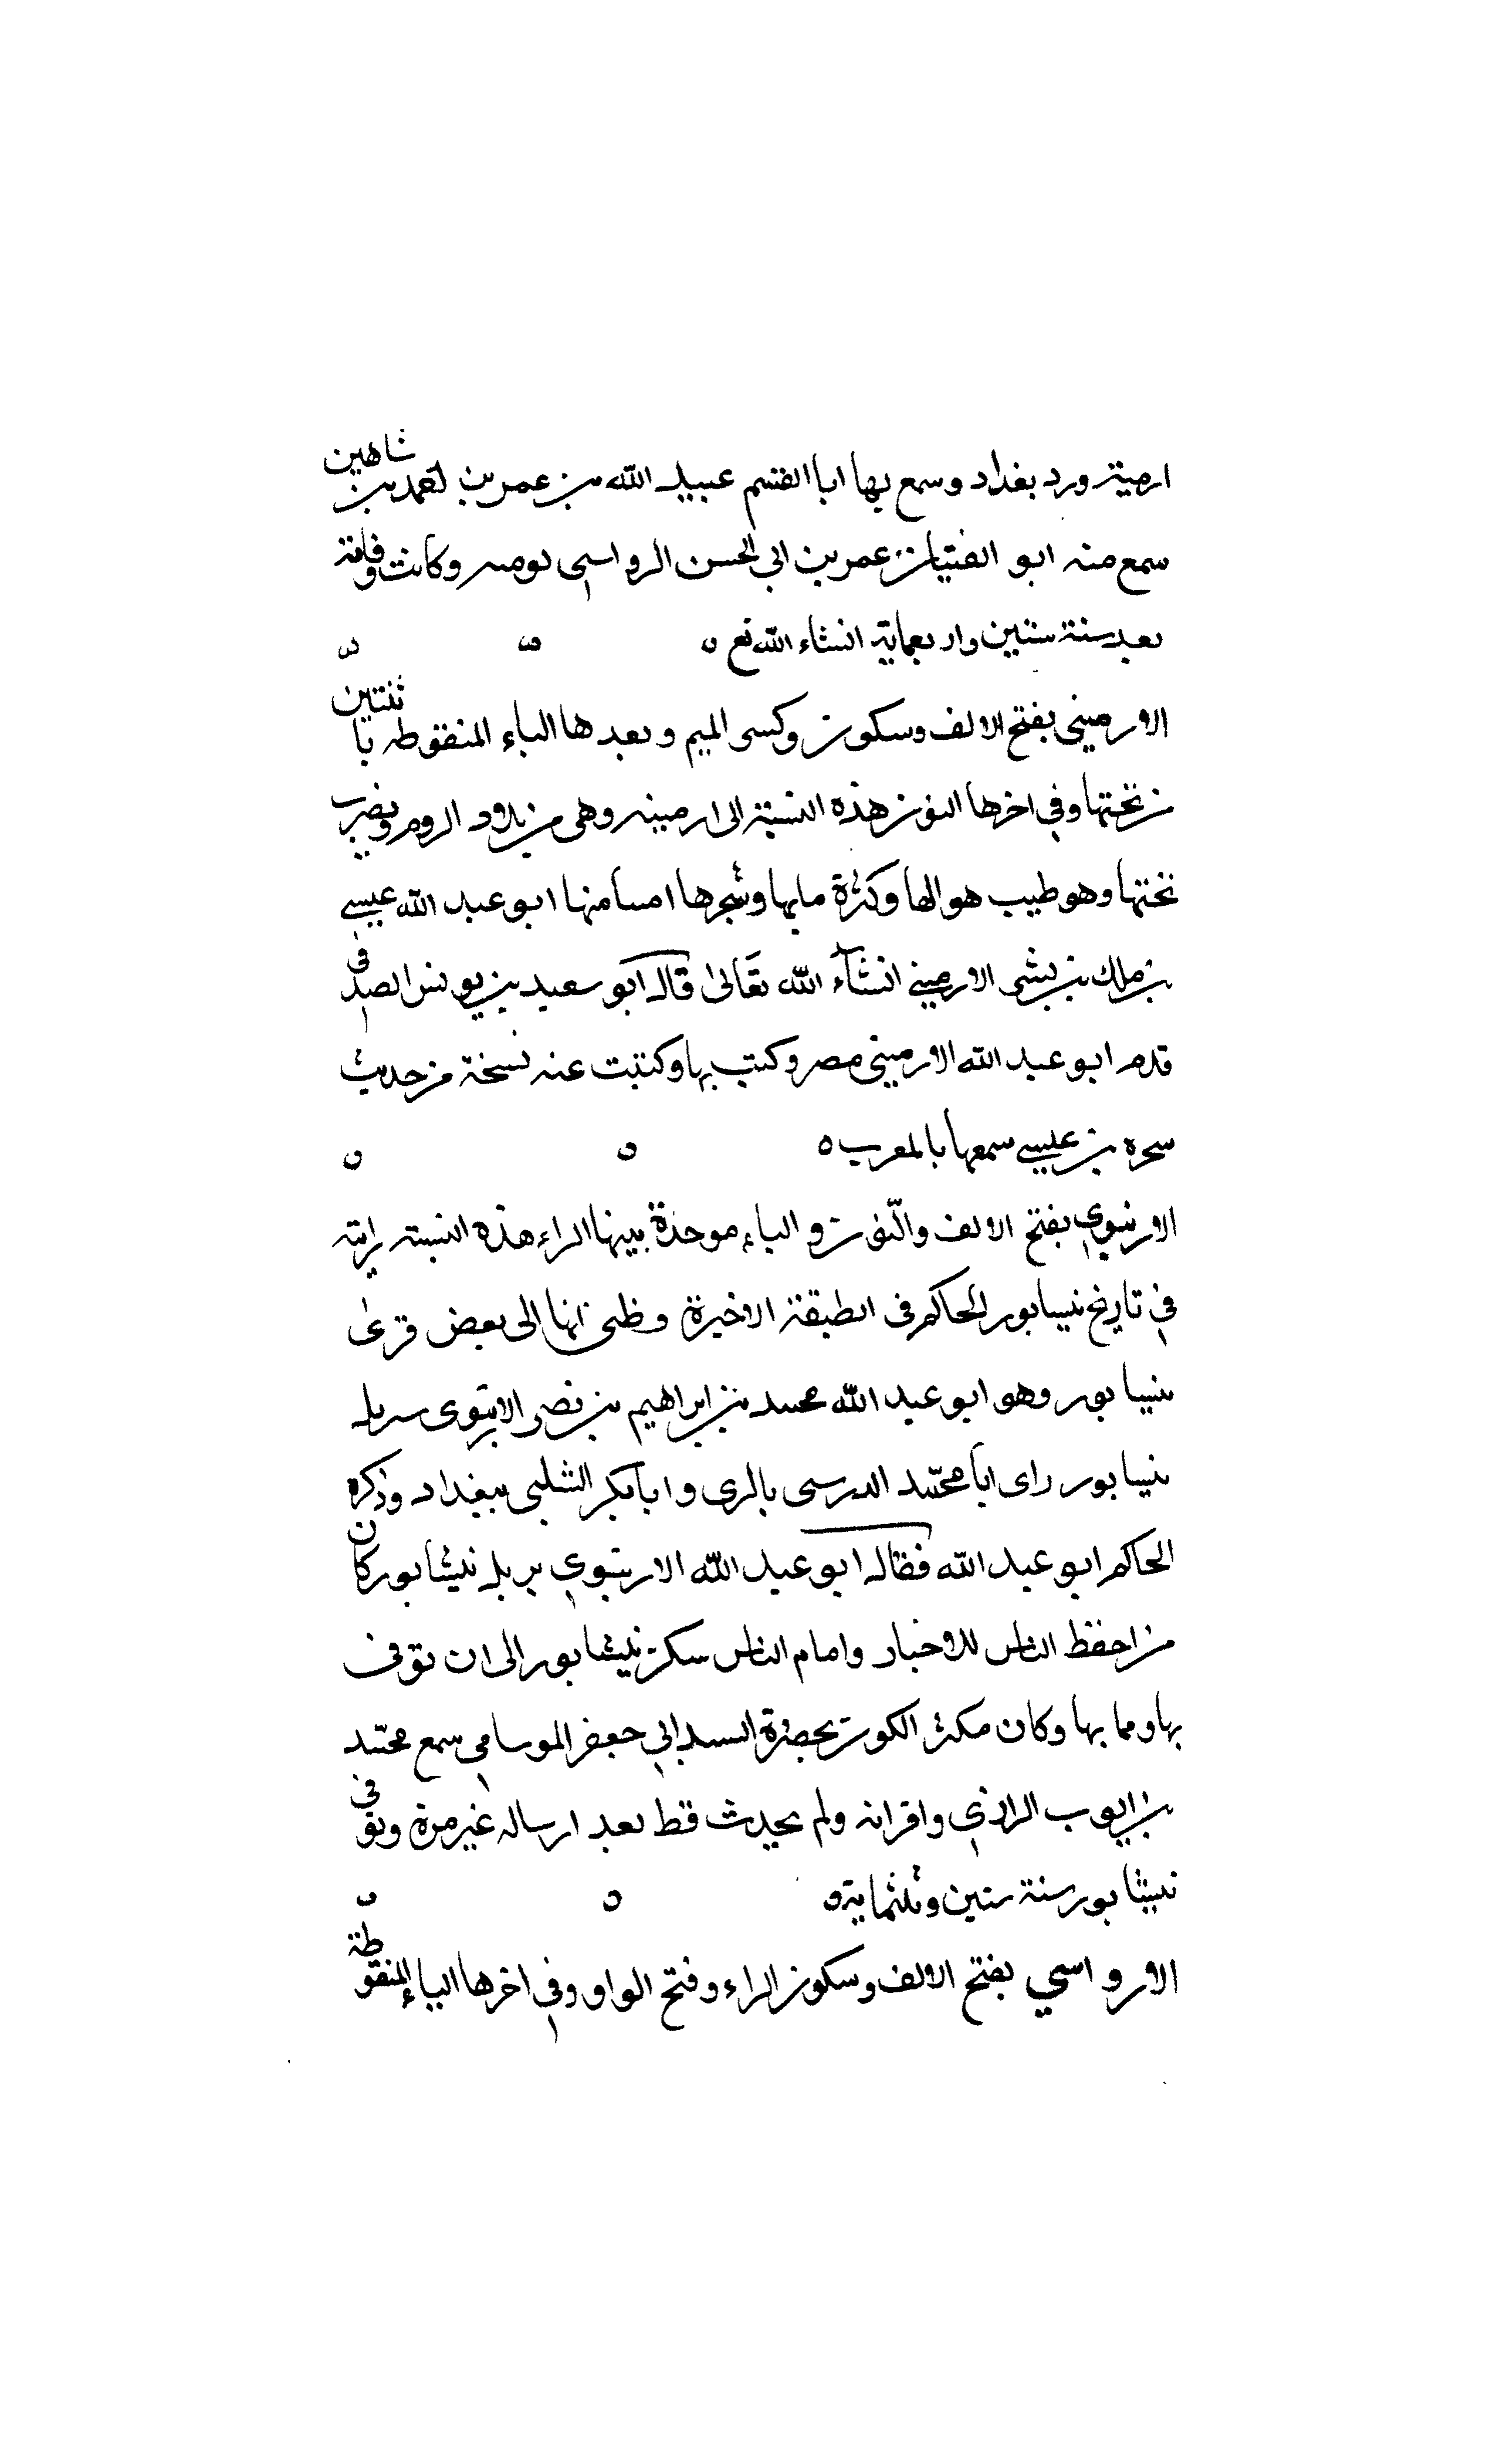 ارمينة ورد بغداد وسمع بها ابا القسم عبيد الله بن عمر بن احمد بن شاهين
سمع منه ابو الفتيان عمر بن ابي الحسن الرواسي بومبر وكانت وفاته
بعد سنة ستين واربعماية انشاء الله تع
الارميني بفتح الالف وسكون وكسر الميم وبعدها الياء المنقوطه باثنتين
من تحتها وفي اخرها النون هذه النسبة الى ارمينه وهى من بلاد الروم ويضرب
نحتها وهو طيب هوائها وكثرة مايها وشجرها امسا منها ابو عبد الله عيسى
بن ملك بن بشر الارميني انشآء الله تعالى قال ابو سعيد بن يونس الصدفي
قدم ابو عبد الله الارميني مصر وكتب بها وكتبت عنه نسخة من حديث
سحره بن عيسى سمعها بالمغرب
الارنبوي بفتح الالف والنون والباء موحدة بينها الراء هذه النسبة رايته
في تاريخ نيسابور للحاكم في الطبقة الاخيرة وظنى انها الى بعض قرى
نيسابور وهو ابو عبد الله محمد بن ابراهيم بن نصر الانبوى
نيسابور راى ابا محمد المرسى بالرى وابا بكر الشبلى ببغداد وذكره
الحاكم ابو عبد الله فقال ابو عبد الله الارنبوي نزيل نيشابور كان
من احفظ الناس للاخبار وامام الناس سكن نيشابور الى ان توفى
بها ومما بها وكان مكثر الكون بحضرة السيد ابي جعفر الموسامي سمع محمد
بن ايوب الرازي واقرانه ولم يحدث قط بعد ارساله غير مرة وتوفي
نيشابور سنة ستين وثلثماية
الارواسي بفتح الالف وسكون الراء وفتح الواو وفي اخرها الياء المنقوطة